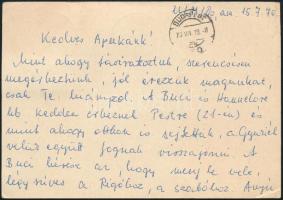 15.7.70.
BUDAPEST
Kedves Apukánk!
Mint ahogy táviratoztuk, szerencsésen
megérkeztünk, jól érezzük magunkat,
csak Te hiányzol. A Buci és Hannelore
kb. kedden érkeznek Pestre (21-én) és
mint ahogy otthon is sejtettük, a Gyuri
velük együtt fognak visszajönni. A
Buci kérése az, hogy menj be vele,
légy szíves a Rigóhoz, a szabóhoz. Anyu